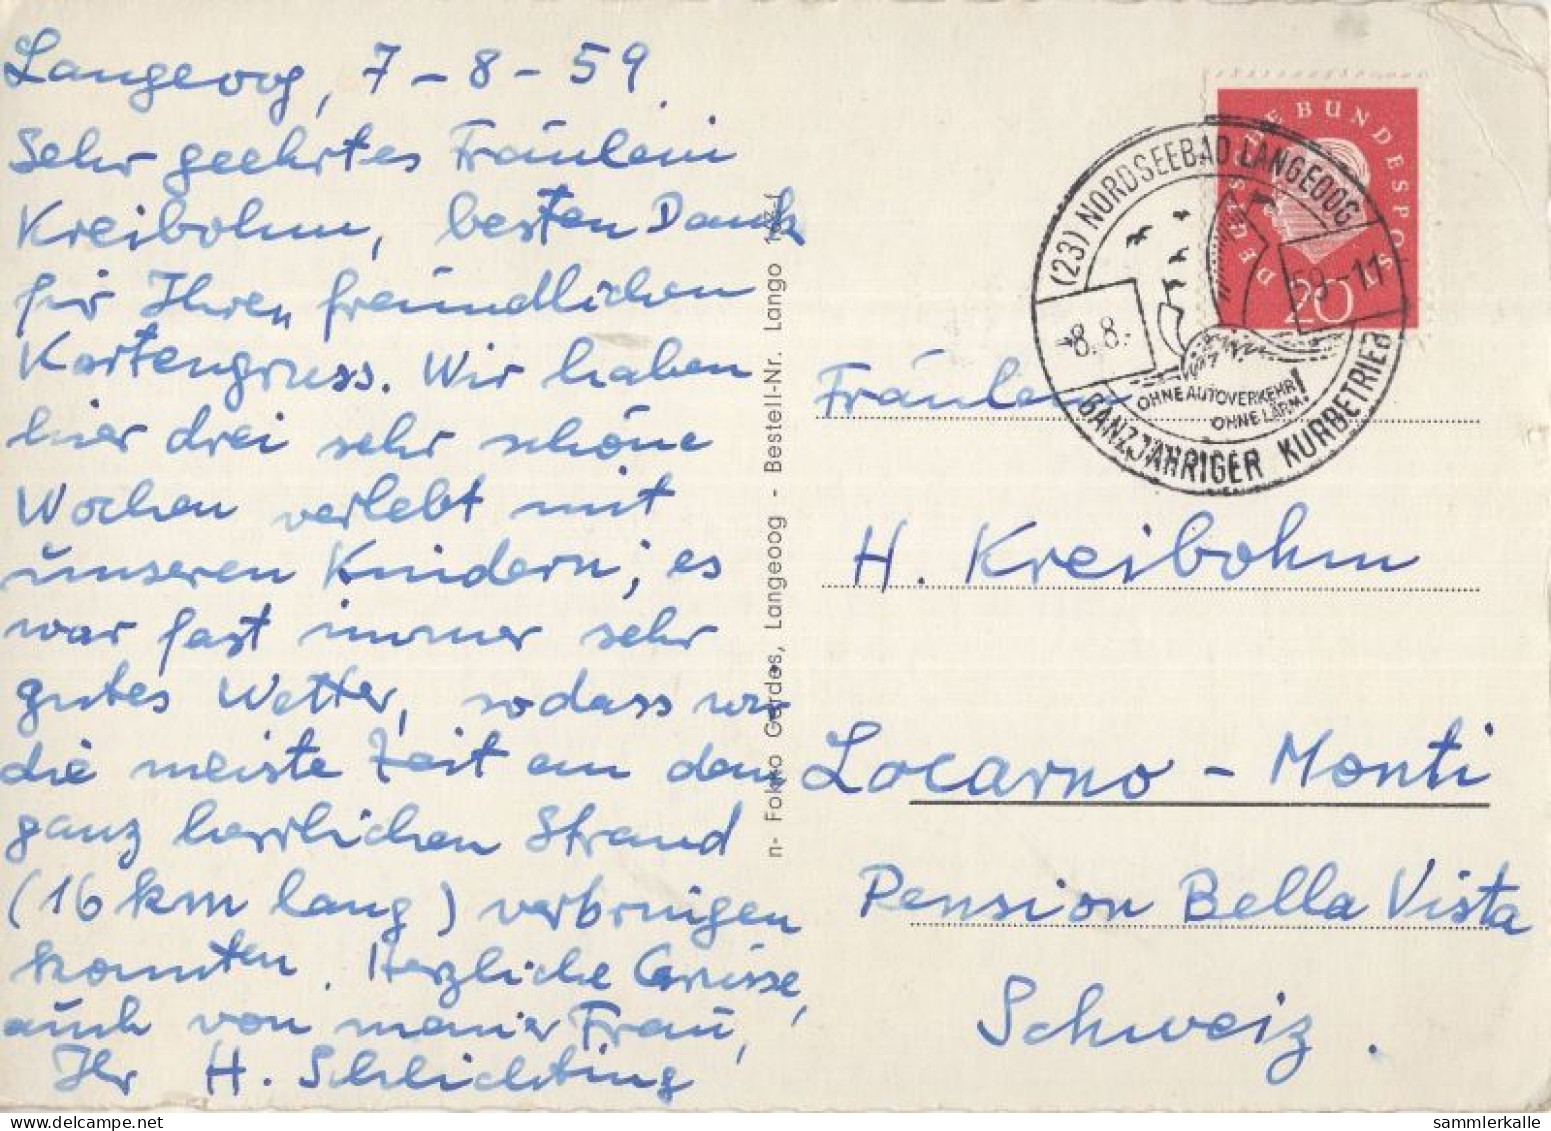 Langeoog, 7-8-59.
Sehr geehrtes Fräulein
Kreibohm, besten Dank
für Ihren freundlichen
Kartengruss. Wir haben
hier drei sehr schöne
Wochen verlebt mit
unseren Kindern; es
war fast immer sehr
gutes Wetter, sodass wir
die meiste Zeit an dem
ganz herrlichen Strand
(16 km lang) verbringen
konnten. Herzliche Grüsse,
auch von meiner Frau,
Ihr H. Schlichting
Foko Gerdes, Langeoog - Bestell-Nr. Lango
DEUTSCHE BUNDESPOST
20
(23) NORDSEEBAD LANGEOOG
-8.8.59-11
OHNE AUTOVERKEHR
OHNE LÄRM!
GANZJÄHRIGER KURBETRIEB
Fräulein
H. Kreibohm
Locarno - Monti
Pension Bella Vista
Schweiz.
sammlerkalle